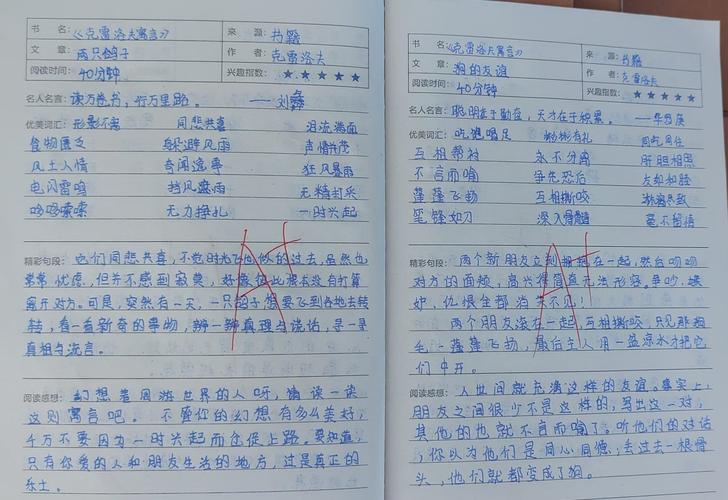 书 名:《克雷洛夫寓言》 来 源: 书籍
文 章: 两只鸽子 作 者: 克雷洛夫
阅读时间: 40分钟 兴趣指数: ★★★★★
名人名言: 读万卷书,行万里路。 ——刘彝
优美词汇: 形影不离 同悲共喜 泪流满面
食物匮乏 躲避风雨 声情并茂
风土人情 奇闻逸事 狂风暴雨
电闪雷鸣 挡风遮雨 无精打采
哆哆嗦嗦 无力挣扎 一时兴起
精彩句段: 它们同悲共喜,不觉时光飞似的过去,虽然也
常常忧虑,但并不感到寂寞,好像彼此根本没有打算
离开对方。可是,突然有一天,一只鸽子想要飞到各地去转
转,看一看新奇的事物,辨一辨真理与谎话,寻一寻
真相与流言。
阅读感想: 幻想着周游世界的人呀,请读一读
这则寓言吧。不管你的幻想有多么美好,
千万不要因为一时兴起而仓促上路。要知道,
只有你爱的人和朋友生活的地方,才是真正的
乐土。
书 名:《克雷洛夫寓言》 来 源: 书籍
文 章: 狗的友谊 作 者: 克雷洛夫
阅读时间: 40分钟 兴趣指数: ★★★★★
名人名言: 聪明在于勤奋,天才在于积累。——华罗庚
优美词汇: 吃饱喝足 彬彬有礼 同吃同住
互相帮衬 永不分离 肝胆相照
不言而喻 争先恐后 友好和睦
蓬蓬飞扬 互相撕咬 淋漓尽致
笔锋如刀 深入骨髓 毫不留情
精彩句段: 两个新朋友立刻拥抱在一起,然后吻吻
对方的面颊,高兴得简直无法形容,争吵、嫉
妒、仇恨全都消失不见!
两个朋友滚在一起,互相撕咬,只见那狗
毛一蓬蓬飞扬,最后主人用一盆凉水才把它
们冲开。
阅读感想: 人世间就充满这样的友谊。事实上,
朋友之间很少不是这样的,写出这一对,
其他的也就不言而喻了。听他们的对话
,你以为他们是同心同德,丢过去一根骨
头,他们就都变成了狗。